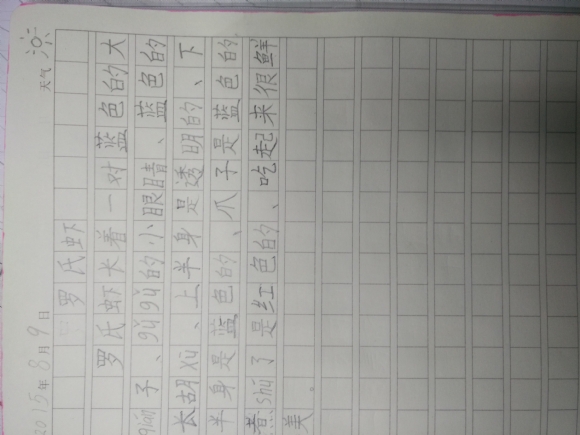 2015年8月9日 天气
罗氏虾
罗氏虾长着一对蓝色的大
qián子、gǔgǔ的小眼睛、蓝色的
长胡xū、上半身是透明的、下
半身是蓝色的、爪子是蓝色的
煮shú了是红色的、吃起来很鲜
美。